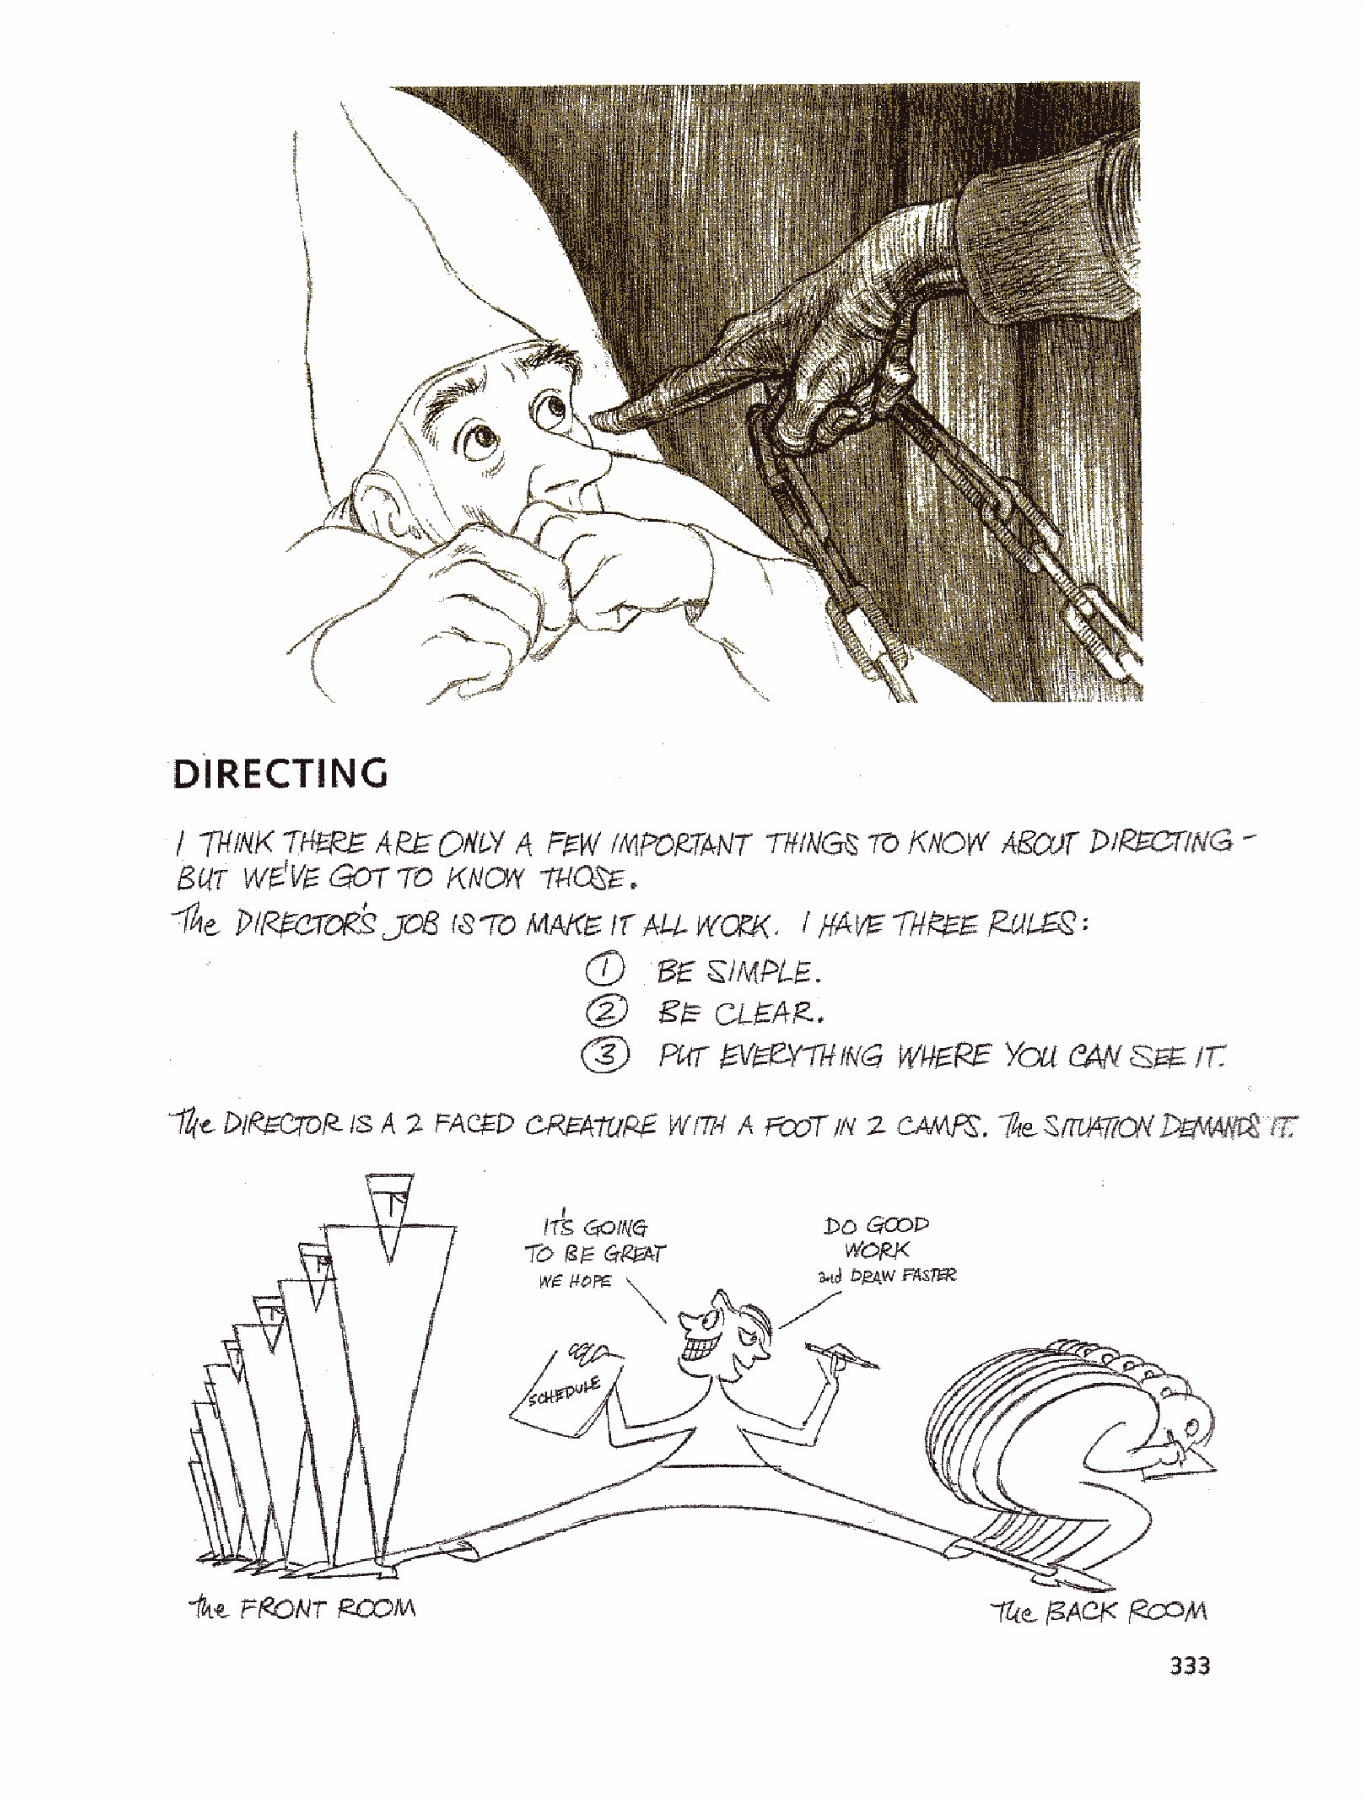 DIRECTING
I THINK THERE ARE ONLY A FEW IMPORTANT THINGS TO KNOW ABOUT DIRECTING -
BUT WE'VE GOT TO KNOW THOSE.
The DIRECTOR'S JOB IS TO MAKE IT ALL WORK. I HAVE THREE RULES:
① BE SIMPLE.
② BE CLEAR.
③ PUT EVERYTHING WHERE YOU CAN SEE IT.
The DIRECTOR IS A 2 FACED CREATURE WITH A FOOT IN 2 CAMPS. The SITUATION DEMANDS IT.
IT'S GOING
TO BE GREAT
WE HOPE
DO GOOD
WORK
and DRAW FASTER
SCHEDULE
the FRONT ROOM
The BACK ROOM
333